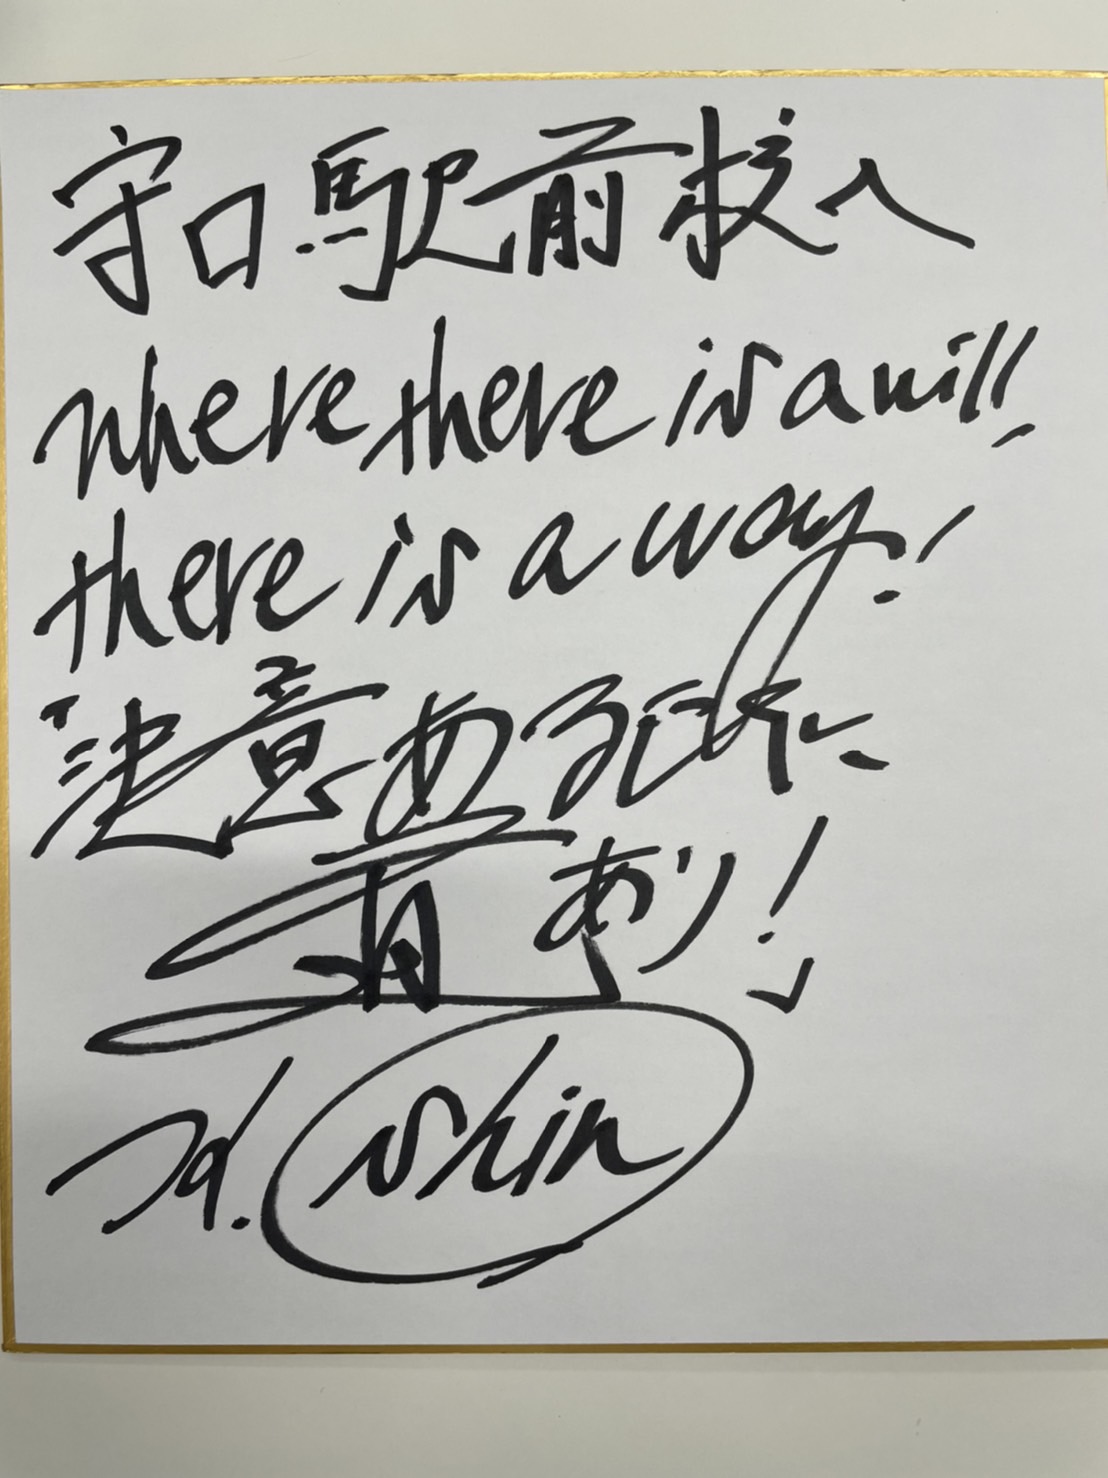 守口駅前校へ
where there is a will,
there is a way!
「決意あるところに、
道あり!」
shin